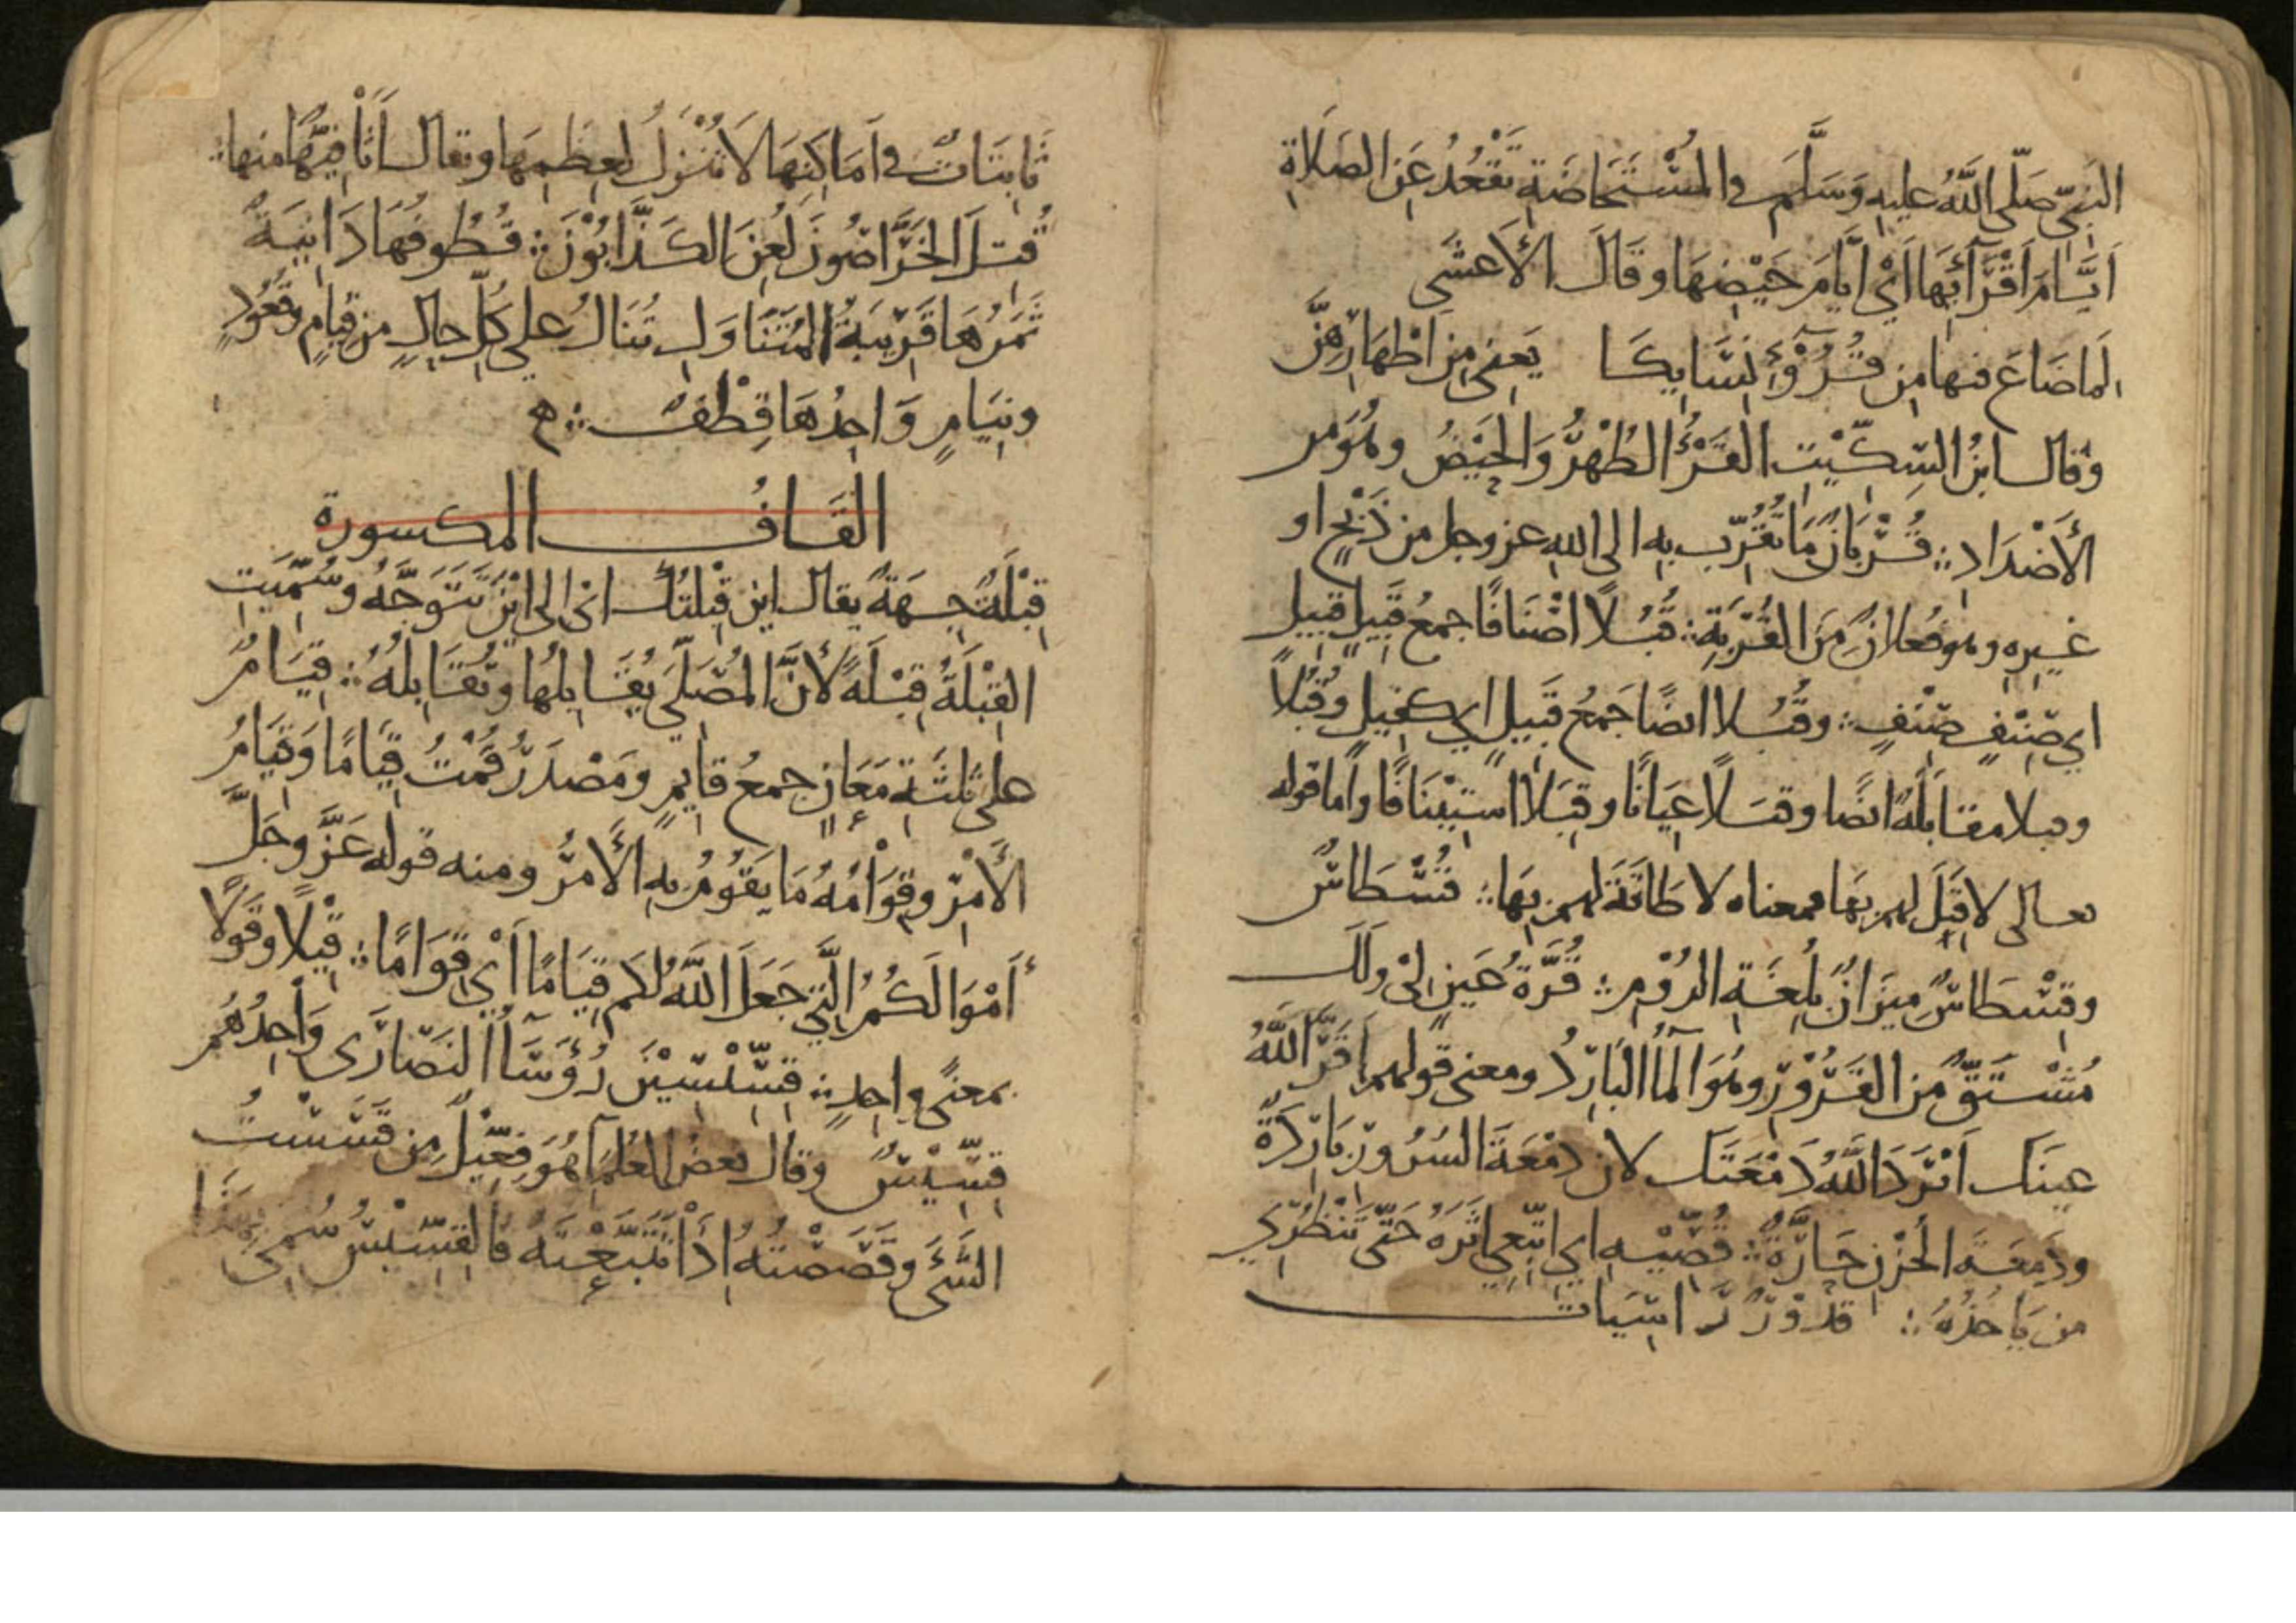 النبيّ صَلّى اللَّهُ عليه وَسَلَّمَ في المُسْتَحَاضَةِ تَقْعُدُ عَنِ الصَلَاةِ
اَيَّامَ اَقْرَآئِهَا اَيْ اَيَّامَ حَيْضِهَا وقَالَ الأَعشَى
لما ضَاعَ فيها مِن قُرُوْءِ نِسَايِكَا يَعنى مِن اطْهَارِهِنَّ
وقال ابنُ السِّكِّيْتِ القَرْءُ الطُهْرُ وَالحَيْضُ وهُوَ مِن
الأَضْدَادِ ؞ قُرْبَانٌ مَا تُقُرِّبَ بِهِ الى الله عز وجل من ذَبْحٍ او
غيرِهِ وهو فُعلانٌ مِنَ القُرْبَةِ ؞ قُبُلاً اصْنَافًا جمعُ قَبِيلٍ قَبِيلٍ
اي صِنْفٍ صِنْفٍ ؞ وقُبُلا ايضًا جَمعُ قَبِيلٍ اي كفيلٍ وقُبُلاً
وقبلا مقَابَلَةً ايضًا وقبَلاً عِيَانًا وقِبَلاً استِيْنَافًا واَما قوله
تعالى لا قِبَلَ لهم بهَا فمعناه لا طَاقَةَ لهم بِهَا ؞ قُسْطَاسٌ
وقِسْطَاسٌ مِيزَانٌ بِلُغَةِ الرُوْمِ ؞ قُرَّةُ عَينٍ لِىْ ولَكَ
مُشْتَقٌّ مِنَ القَرُوْرِ وهُوَ المَآءُ البَارِدُ ومعنى قولهم اَقَرَّ اللَّهُ
عينَكَ اَبْرَدَ اللَّهُ دَمْعَتَكَ لان دَمْعَةَ السُرُورِ بَارِدَةٌ
ودَمعَةَ الحُزْنِ حَارَّةٌ ؞ قُصِّيْهِ اي اتَّبِعِي اثَرَهُ حَتّى تَنْظُرِي
من يَاخُذُهُ ؞ قدُوْرٍ رَاسِيَاتٍ
ثَابِتَاتٌ في اَمَاكِنِهَا لاَ تُنْزَلُ لِعِظَمِهَا ويقال اَثَافِيُّهَا منها ؞
قُتِلَ الخَرَّاصُونَ لُعِنَ الكَذَّابُوْنَ ؞ قُطُوفُهَا دَانِيَةٌ
ثَمَرُهَا قَرِيْبَةُ المُتَنَاوَلِ تُنَالُ على كُلِّ حالٍ مِن قِيَامٍ وقُعُودٍ
ونِيَامٍ وَاحِدُهَا قِطْفٌ ؞ ه
القَافُ المكسورة
قِبْلَةً جِهَةً يقال اين قِبْلتُكَ اى الى اَيْنَ تَتَوَجَّهُ وسُمِّيَتِ
القِبْلَةُ قِبْلَةً لأَنَّ المُصَلّيَ يُقَابِلُها وتُقَابِلُهُ ؞ قِيَامٌ
على ثلثَةِ مَعَانٍ جمعُ قايِمٍ ومَصْدَرُ قُمْتُ قِيَامًا وَقِيَامُ
الأَمْرِ وقِوَامُهُ مَا يَقُوْمُ بِهِ الأَمرُ ومنه قوله عَزَّ وجَلَّ
أَمْوَالَكُمُ الَّتِي جَعَلَ اللَّهُ لكم قِيَامًا اَيْ قِوَامًا ؞ قِيْلًا وقَوْلًا
بمعنًى واحِدٍ ؞ قِسِّيْسِيْنَ رُؤَسَآءُ النَصَارَى وَاحِدُهُم
قِسِّيْسٌ وقال بعضُ العُلَمَآءِ هُوَ فِعِّيْلٌ مِن قَسَسْتُ
الشَيْءَ وقَصَصْتُهُ اِذَا تَتَبَّعْتَهُ فالقِسِّيْسُ سُمِىَ بهَذَا